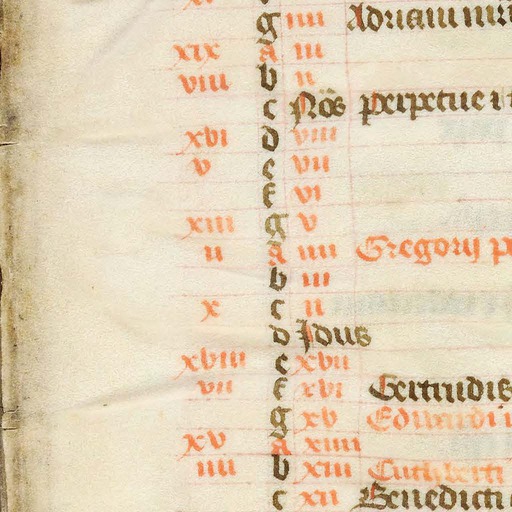 g iiii Adriani
xix a iii
viii b ii
c Nōs perpetue
xvi d viii
v e vii
f vi
xiii g v
ii a iiii Gregorij
b iii
x c ii
d Idus
xviii e xvii
vii f xvi Gertrudis
g xv Edwardi
xv a xiiii
iiii b xiii Cuthberti
c xii Benedicti